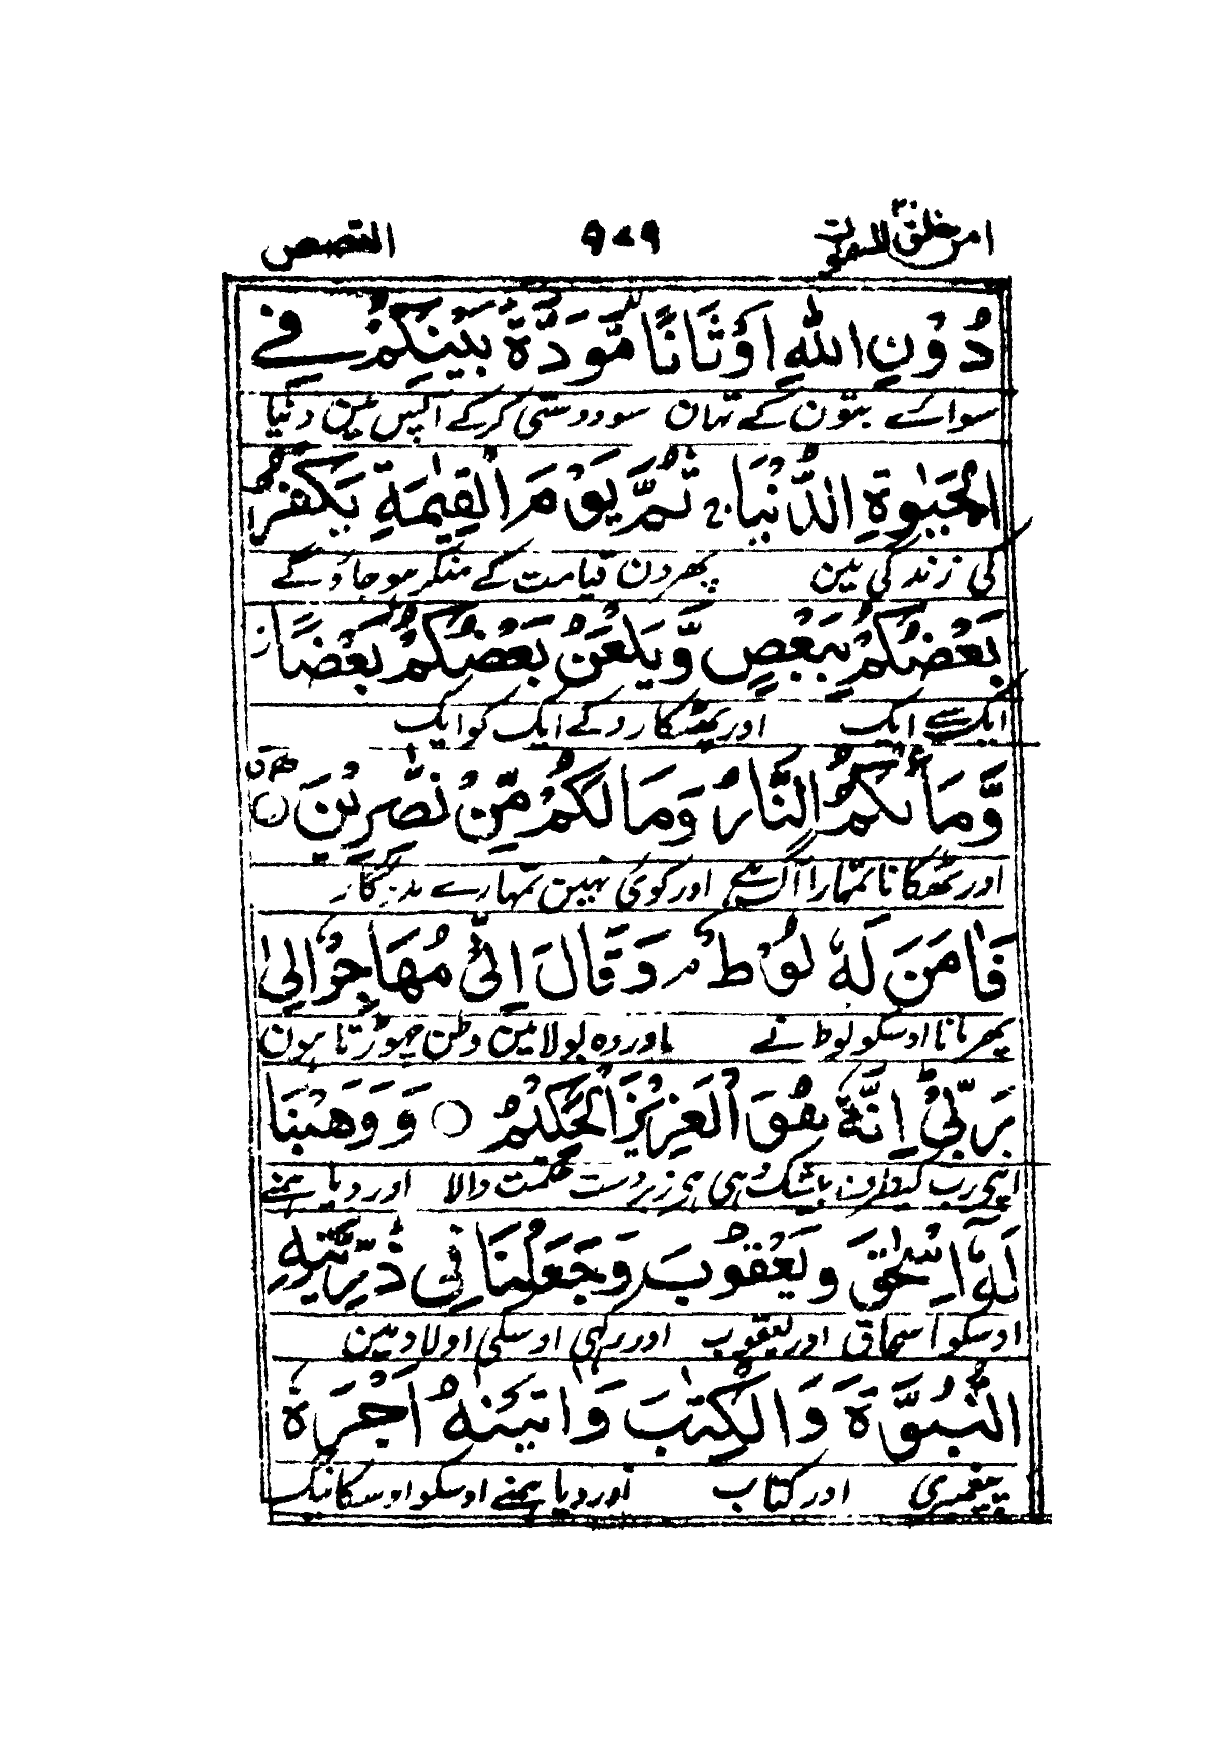 امن خلق السموت ۲۰ ۹۷۹ القصص
دُوْنِ اللّٰهِ اَوْثَانًا مَّوَدَّةَ بَيْنِكُمْ فِے
سواے کے بتون کے تہان سو دوستی کر کے آپس مین دنیا
الْحَيٰوةِ الدُّنْيَا ج ثُمَّ يَوْمَ الْقِيٰمَةِ يَكْفُرُ
کی زندگی مین پھر دن قیامت کے منکر ہو جاوگے
بَعْضُكُمْ بِبَعْضٍ وَّيَلْعَنُ بَعْضُكُمْ بَعْضًا ز
ایک سے ایک اور پھٹکارو کے ایک کو ایک
وَّمَاْوٰىكُمُ النَّارُ وَمَا لَكُمْ مِّنْ نّٰصِرِيْنَ ○
اور ٹھکانا تمہارا آگ ہے اور کوئی نہین تمہارے مددگار
فَاٰمَنَ لَهٗ لُوْطٌ م وَقَالَ اِنِّىْ مُهَاجِرٌ اِلٰى
پھر مانا اوسکو لوط نے اور وہ بولا مین وطن چھوڑتا ہون
رَبِّىْ اِنَّهٗ هُوَ الْعَزِيْزُ الْحَكِيْمُ ○ وَوَهَبْنَا
اپنی رب کیطرف بیشک وہی ہی زبردست حکمت والا اور دیا ہمنے
لَهٗٓ اِسْحٰقَ وَيَعْقُوْبَ وَجَعَلْنَا فِىْ ذُرِّيَّتِهِ
اوسکو اسحاق اور یعقوب اور رکہی اوسکی اولاد مین
النُّبُوَّةَ وَالْكِتٰبَ وَاٰتَيْنٰهُ اَجْرَهٗ
پیغمبری اور کتاب اور دیا ہمنے اوسکو اوسکا نیگ